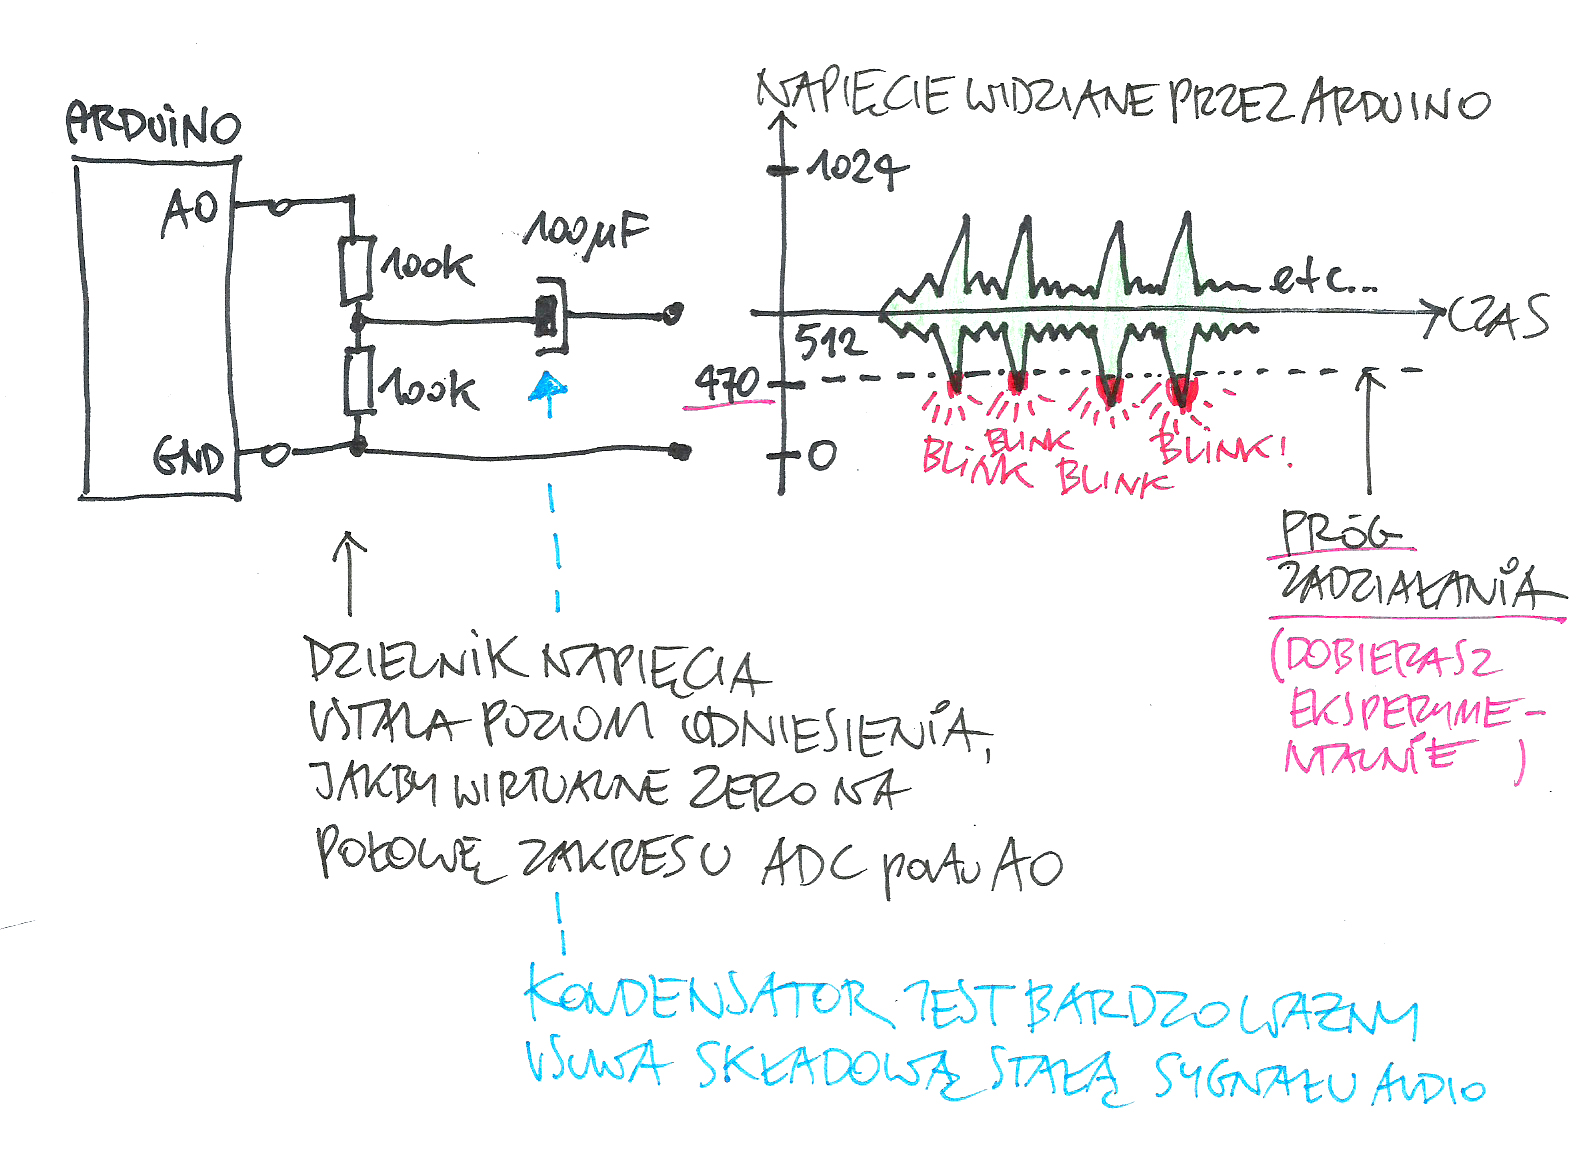 ARDUiNO
A0
GND
100K
100K
100µF
NAPIĘCIE WIDZIANE PRZEZ ARDUINO
1024
512
470
0
etc...
CZAS
BLINK
BLINK
BLINK
BLINK!
PRÓG
ZADZIAŁANiA
(DOBIERASZ
EKSPERYME-
NTALNIE)
DZIELNiK NAPIĘCIA
USTALA POZIOM ODNIESIENiA,
JAKBY WIRTUALNE ZERO NA
POŁOWĘ ZAKRESU ADC portu A0
KONDENSATOR JEST BARDZO WAŻNY
USUWA SKŁADOWĄ STAŁĄ SYGNAŁU AUDIO